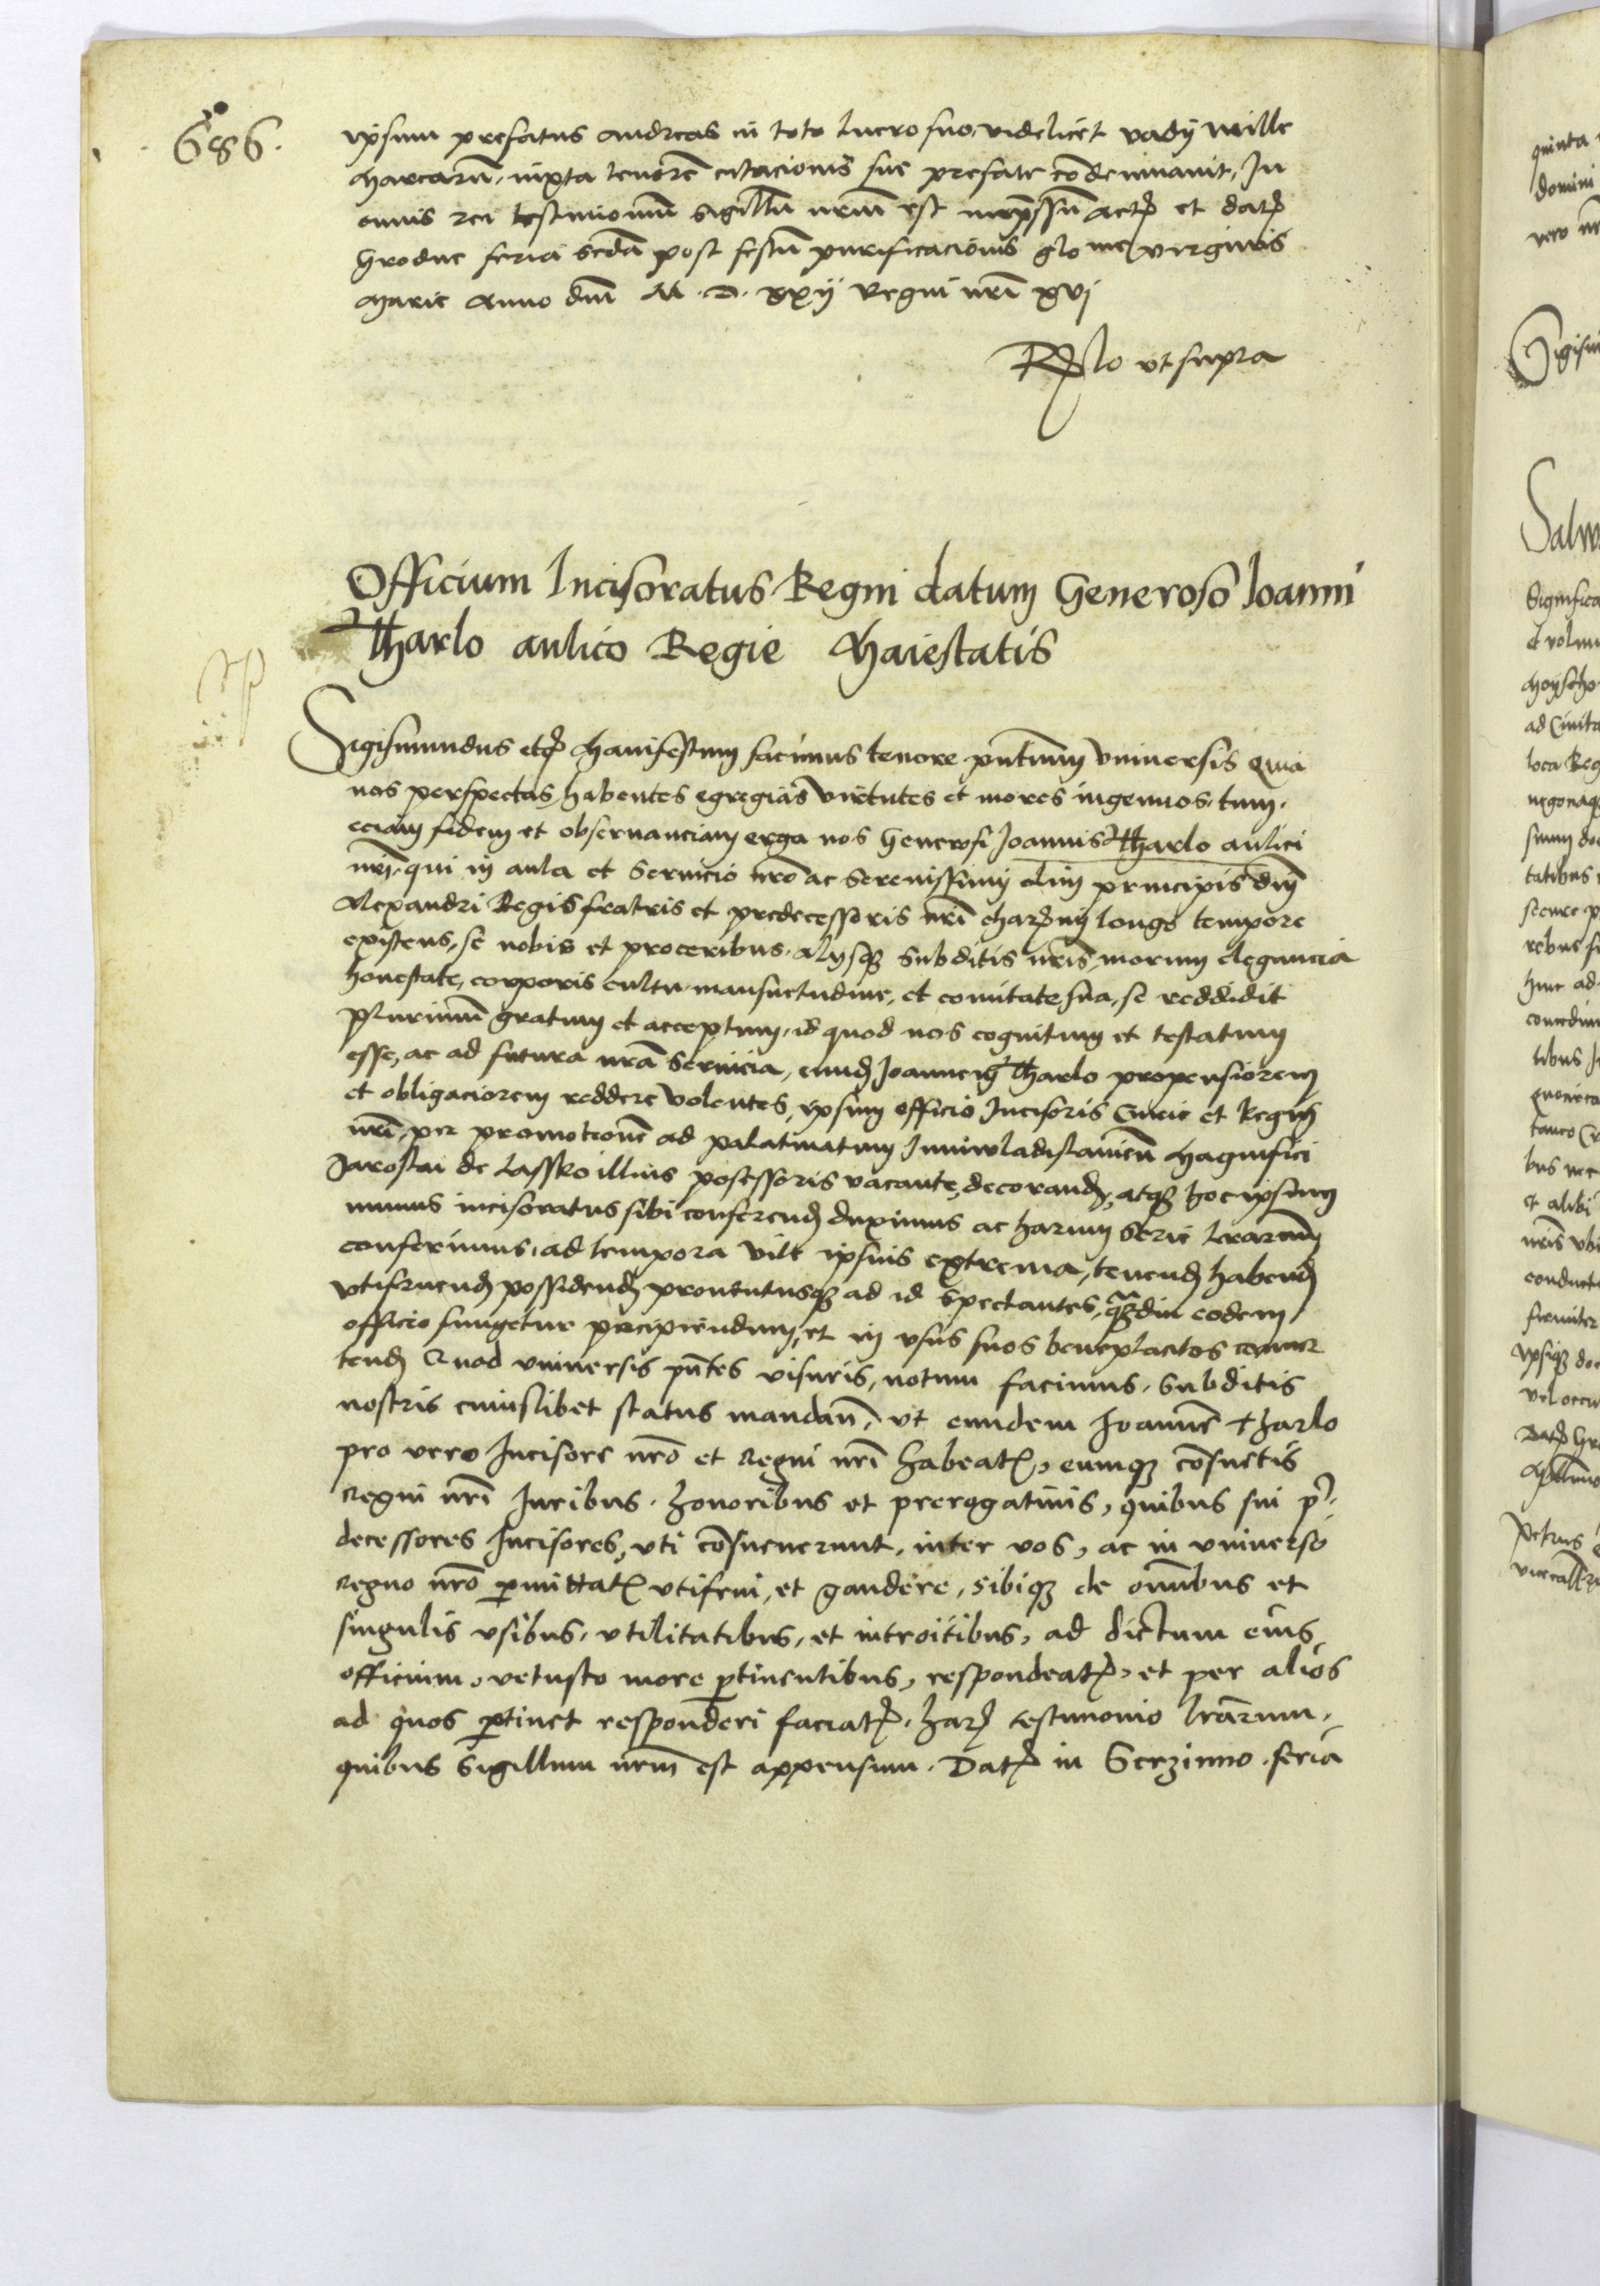 686.
ipsum prefatus andreas in toto lucro suo, videlicet vadij mille
Marcarũ, iuxta tenorẽ citacionis sue prefate cõdemnavit, In
cuius rei testimoniũ sigillũ nrũm est impressũ actꝭ et datꝭ
Grodne feria secũda post festũ purificacionis glo me virginis
Marie Anno dñi M. D. xxij Regni nrĩ xvj
Rlo vt supra
Officium Incisoratus Regni datum Generoso Ioanni
Tharlo aulico Regie Maiestatis
Sigismundus etcꝭ Manifestum facimus tenore pñtium Vniversis Quia
nos perspectas habentes egregias virtutes et mores ingenuos, tum,
eciam fidem et observanciam erga nos Generosi Joannis Tharlo aulici
nrĩ, qui in aula et Servicio nrõ ac Serenissimi olim principis dñi
Alexandri Regis fratris et predecessoris nrĩ charissimi longo tempore
existens, se nobis et proceribus, Alijsqꝫ Subditis nrĩs, morum elegancia
honestate, corporis cultu mansuetudine, et comitate sua, se reddidit
plurimũ gratum et acceptum, id quod nos cognitum et testatum
esse, ac ad futura nrã Servicia, eundꝭ Joannem Tharlo propensiorem
et obligaciorem reddere volentes, ipsum officio Incisoris Curie et Regni
nrĩ, per promotionẽ ad palatinatum Iuniwladislaviẽn Magnifici
Jaroslai de Lassko illius possessoris vacante, decorandꝭ, atqꝫ hoc ipsum
munus incisoratus sibi conferendꝭ duximus ac harum Serie lrarum
conferimus, ad tempora vite ipsius extrema, tenendꝭ habendꝭ
vtifruendꝭ possidendꝭ proventusqꝫ ad id Spectantes, qãdiu eodem
officio fungetur percipiendum, et in vsus suos beneplacitos conver
tendꝭ Quod vniversis pñtes visuris, notum facimus, Subditis
nostris cuiuslibet status mandañ, vt eundem Joannẽ Tharlo
pro vero Incisore nrõ et Regni nrĩ habeatꝭ, eumqꝫ cõsuetis
Regni nrĩ Iuribus, honoribus et prerogativis, quibus sui pre-
decessores Incisores, vti cõsueverunt, inter vos, ac in vniverso
Regno nrõ permittatꝭ vtifrui, et gaudere, sibiqꝫ de omĩbus et
singulis vsibus, vtilitatibus, et introitibus, ad dictum eius
officium, vetusto more ꝑtinentibus, respondeatꝭ, et per alios
ad quos ꝑtinet responderi faciatꝭ, harꝭ testimonio lrãrum,
quibus Sigillum nrũm est appensum. Datꝭ in Gerzinno, feria